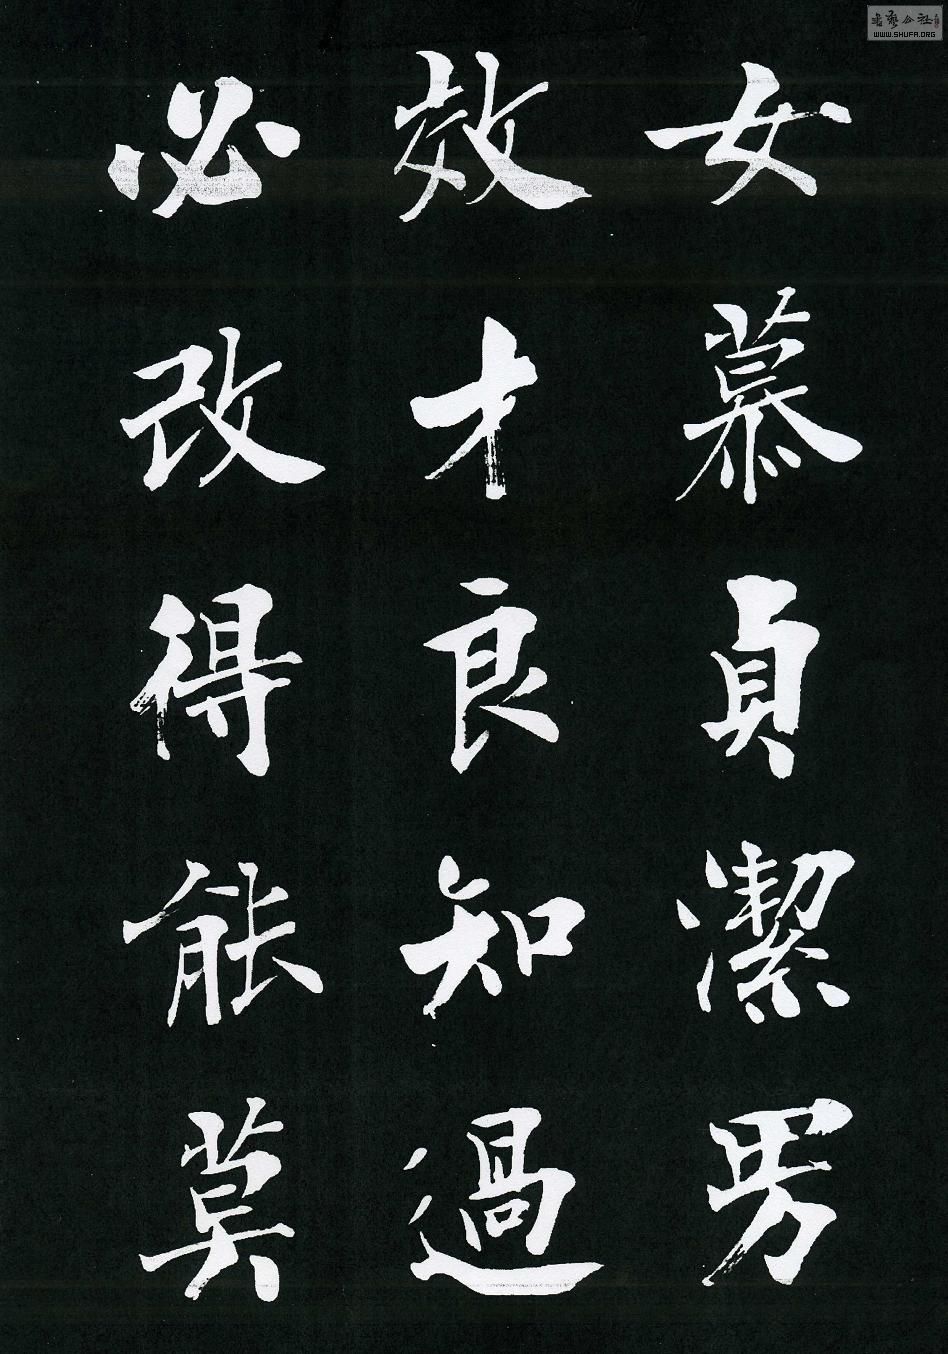 女慕貞潔男
效才良知過
必改得能莫
書藝公社
WWW.SHUFA.ORG